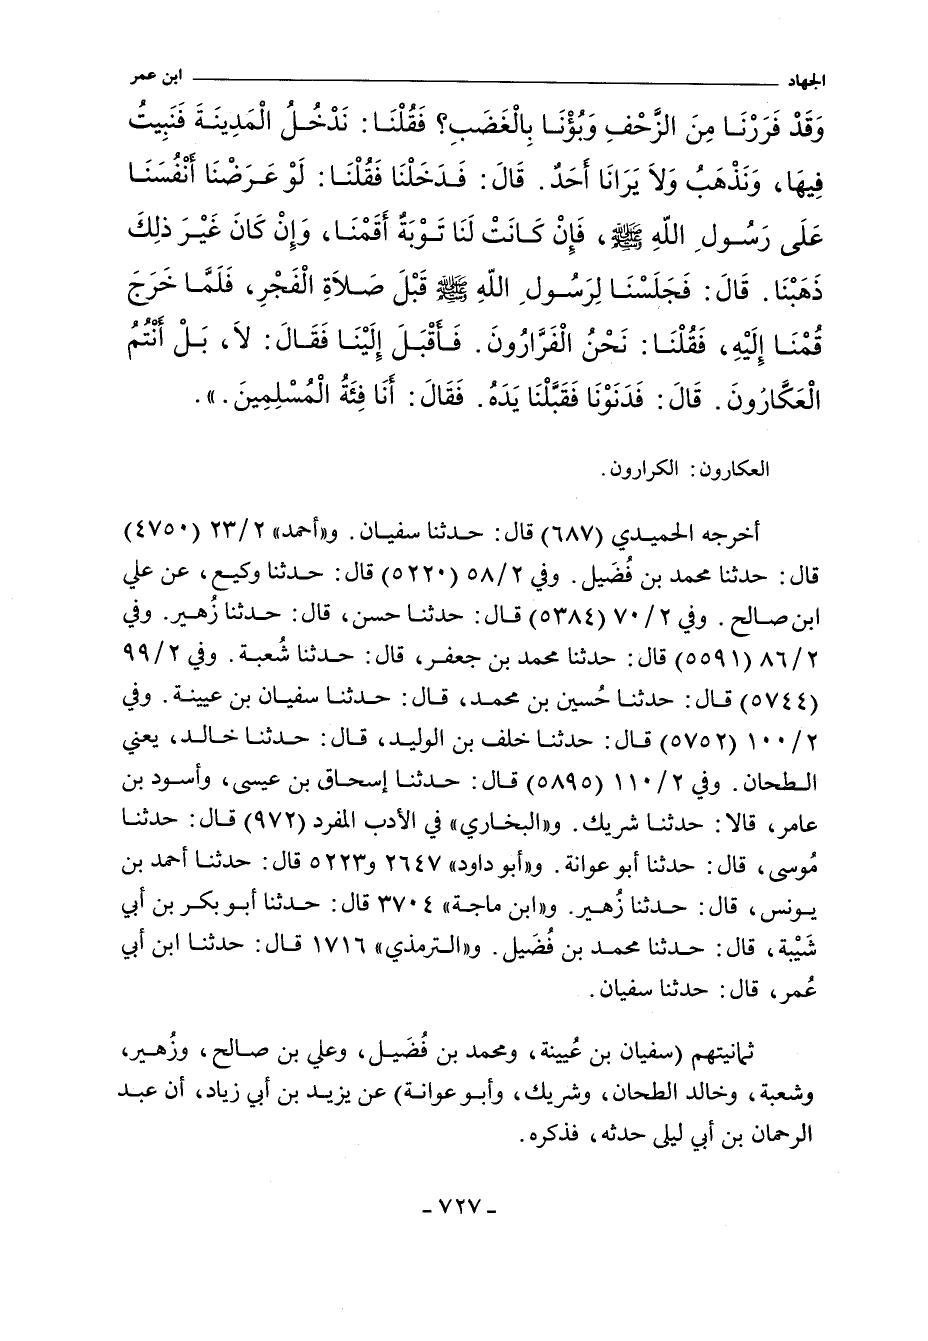 الجهاد ابن عمر
وَقَدْ فَرَرْنَا مِنَ الزَّحْفِ وَبُؤْنَا بِالْغَضَبِ؟ فَقُلْنَا: نَدْخُلُ الْمَدِينَةَ فَنَبِيتُ
فِيهَا، وَنَذْهَبُ وَلاَ يَرَانَا أَحَدٌ. قَالَ: فَدَخَلْنَا فَقُلْنَا: لَوْ عَرَضْنَا أَنْفُسَنَا
عَلَى رَسُولِ اللّهِ ﷺ، فَإِنْ كَانَتْ لَنَا تَوْبَةٌ أَقَمْنَا، وَإِنْ كَانَ غَيْرَ ذلِكَ
ذَهَبْنَا. قَالَ: فَجَلَسْنَا لِرَسُولِ اللّهِ ﷺ قَبْلَ صَلاَةِ الْفَجْرِ، فَلَمَّا خَرَجَ
قُمْنَا إِلَيْهِ، فَقُلْنَا: نَحْنُ الْفَرَّارُونَ. فَأَقْبَلَ إِلَيْنَا فَقَالَ: لاَ، بَلْ أَنْتُمُ
الْعَكَّارُونَ. قَالَ: فَدَنَوْنَا فَقَبَّلْنَا يَدَهُ. فَقَالَ: أَنَا فِئَةُ الْمُسْلِمِينَ.».
العكارون: الكرارون.
أخرجه الحميدي (٦٨٧) قال: حدثنا سفيان. و«أحمد» ٢٣/٢ (٤٧٥٠)
قال: حدثنا محمد بن فُضَيل. وفي ٥٨/٢ (٥٢٢٠) قال: حدثنا وكيع، عن علي
ابن صالح. وفي ٧٠/٢ (٥٣٨٤) قال: حدثنا حسن، قال: حدثنا زُهير. وفي
٨٦/٢ (٥٥٩١) قال: حدثنا محمد بن جعفر، قال: حدثنا شُعبة. وفي ٩٩/٢
(٥٧٤٤) قال: حدثنا حُسين بن محمد، قال: حدثنا سفيان بن عيينة. وفي
١٠٠/٢ (٥٧٥٢) قال: حدثنا خلف بن الوليد، قال: حدثنا خالد، يعني
الطحان. وفي ١١٠/٢ (٥٨٩٥) قال: حدثنا إسحاق بن عيسى، وأسود بن
عامر، قالا: حدثنا شريك. و«البخاري» في الأدب المفرد (٩٧٢) قال: حدثنا
مُوسى، قال: حدثنا أبو عوانة. و«أبو داود» ٢٦٤٧ و٥٢٢٣ قال: حدثنا أحمد بن
يونس، قال: حدثنا زُهير. و«ابن ماجة» ٣٧٠٤ قال: حدثنا أبو بكر بن أبي
شَيْبة، قال: حدثنا محمد بن فُضَيل. و«الترمذي» ١٧١٦ قال: حدثنا ابن أبي
عُمر، قال: حدثنا سفيان.
ثمانيتهم (سفيان بن عُيينة، ومحمد بن فُضَيل، وعلي بن صالح، وزُهير،
وشعبة، وخالد الطحان، وشريك، وأبو عوانة) عن يزيد بن أبي زياد، أن عبد
الرحمان بن أبي ليلى حدثه، فذكره.
- ٧٢٧ -